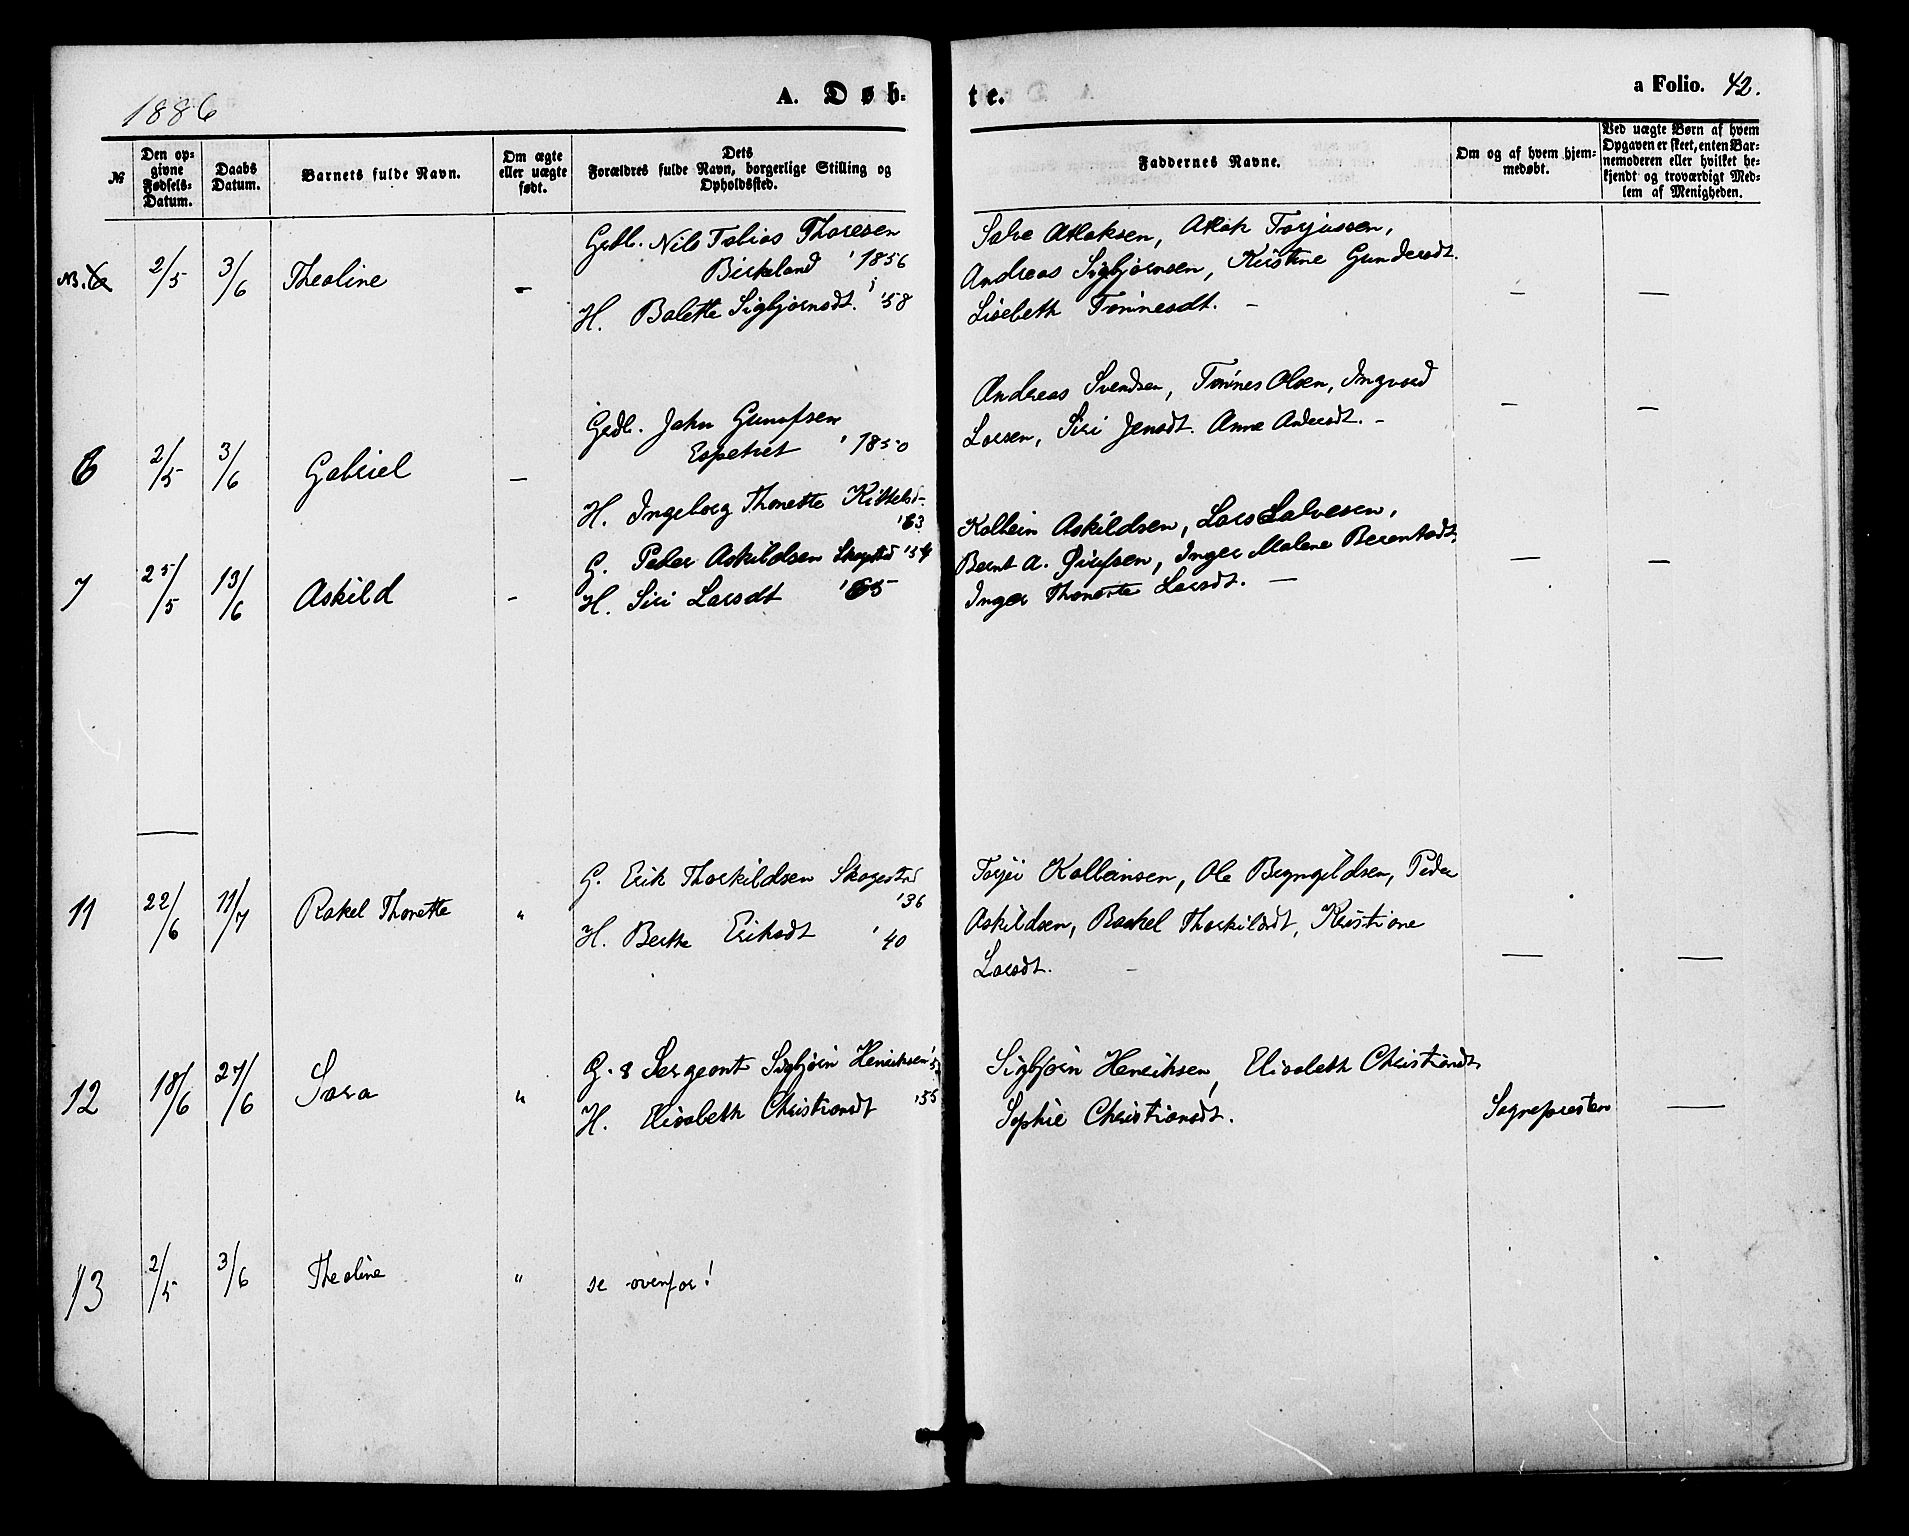 1886
A. Døb-
te.
a Folio. 42.
№
Den op-
givne
Fødsels-
Datum.
Daabs
Datum.
Barnets fulde Navn.
Om ægte
eller uægte
født.
Dets
Forældres fulde Navn, borgerlige Stilling og
Opholdssted.
Faddernes Navne.
Om og af hvem hjem-
medøbt.
Ved uægte Børn af hvem
Opgaven er skeet, enten Bar-
nemoderen eller hvilket be-
kjendt og troværdigt Med-
lem af Menigheden.
NB.
2/5
3/6
Theoline
-
Grdb. Nils Tobias Thoresen
Birkeland '1856
H. Bolette Sigbjørnsdt. '58
Salve Atloksen, Atlak Torjussen,
Andreas Sigbjørnsen, Kirstine Gundersdt.
Lisebeth Tønnesdt. -
—
—
6
2/5
3/6
Gabriel
—
Grdb. John Gunufsen
Espetvet '1850
H. Ingeborg Thonette Kittelsd-
'63
Andreas Svendsen, Tønnes Olsen, Ingvald
Larsen, Siri Jensdt. Anne Andersdt. -
—
—
7
25/5
13/6
Askild
-
G. Peder Askildsen Skogstad '54
H. Siri Larsdt '65
Kolbein Askildsen, Lars Salvesen,
Bernt A. Øiufsen, Inger Malene Berentsdt,
Inger Thonette Larsdt. —
—
—
11
22/6
11/7
Rakel Thonette
"
G. Erik Thorkildsen Skogestad
'36
H. Berthe Eriksdt '40
Torjei Kolbeinsen, Ole Bryngildsen, Peder
Askildsen, Raakel Thorkildsdt, Kristiane
Larsdt. -
—
—
12
18/6
27/6
Sara
"
G. & Sergeant Sigbjørn Henriksen
H. Elisabeth Christiansdt '55
Sigbjørn Henriksen, Elisabeth Christiansdt
Sophie Christiansdt.
Sognepresten
—
13
2/5
3/6
Theoline
"
se ovenfor!